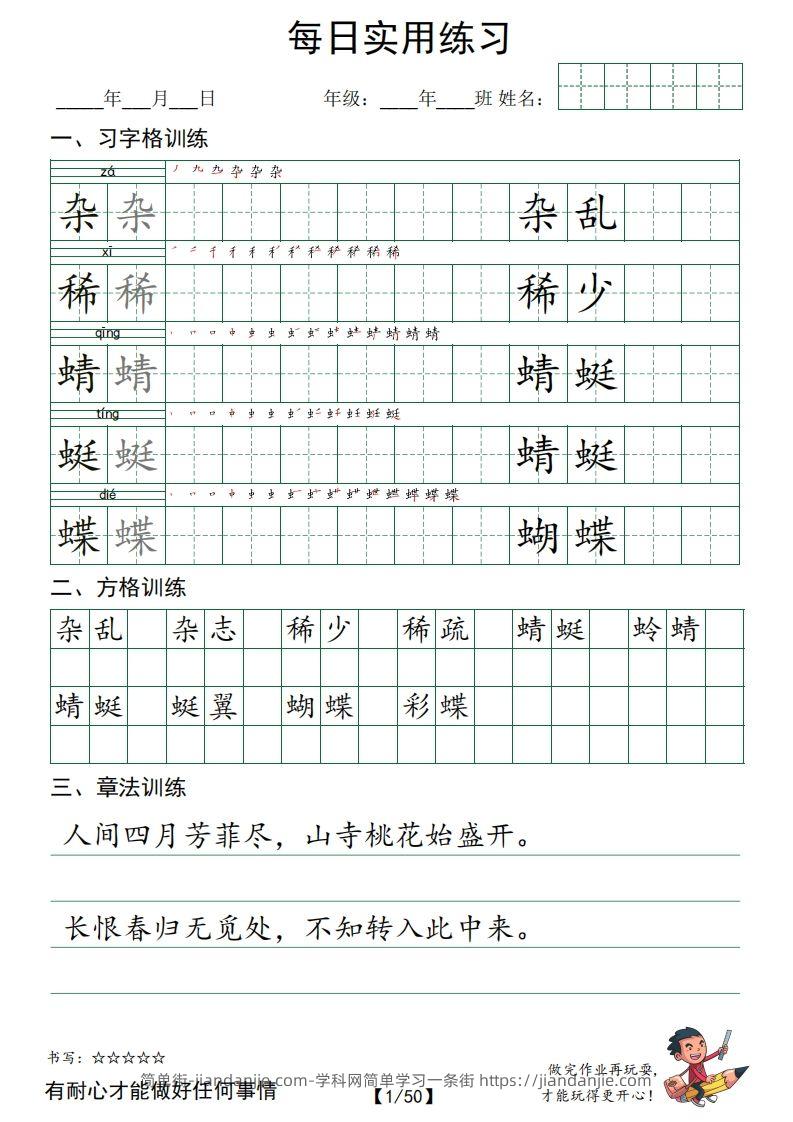 每日实用练习
_____年___月___日 年级：____年____班 姓名：
一、习字格训练
zá
杂 杂 杂 乱
xī
稀 稀 稀 少
qīng
蜻 蜻 蜻 蜓
tíng
蜓 蜓 蜻 蜓
dié
蝶 蝶 蝴 蝶
二、方格训练
杂乱 杂志 稀少 稀疏 蜻蜓 蛉蜻
蜻蜓 蜓翼 蝴蝶 彩蝶
三、章法训练
人间四月芳菲尽，山寺桃花始盛开。
长恨春归无觅处，不知转入此中来。
书写：☆☆☆☆☆
做完作业再玩耍，
简单街-jiandanjie.com-学科网简单学习一条街 https://jiandanjie.com
有耐心才能做好任何事情
【1/50】
才能玩得更开心！